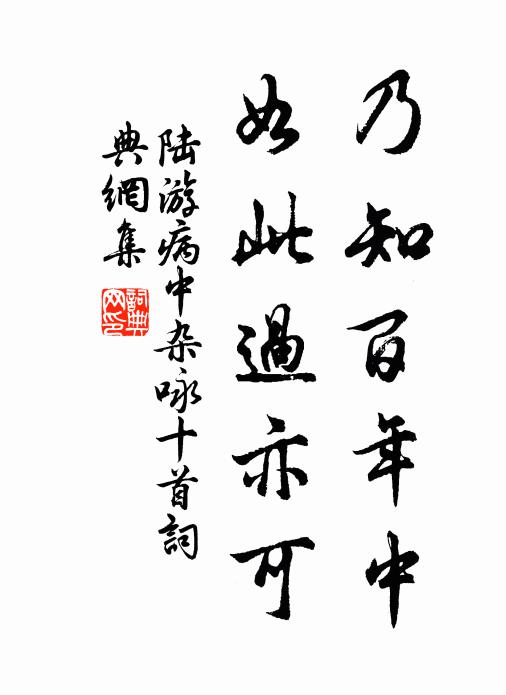 乃知百年中
如此過亦可
陆游病中杂咏十首詞
典網集
詞典網印